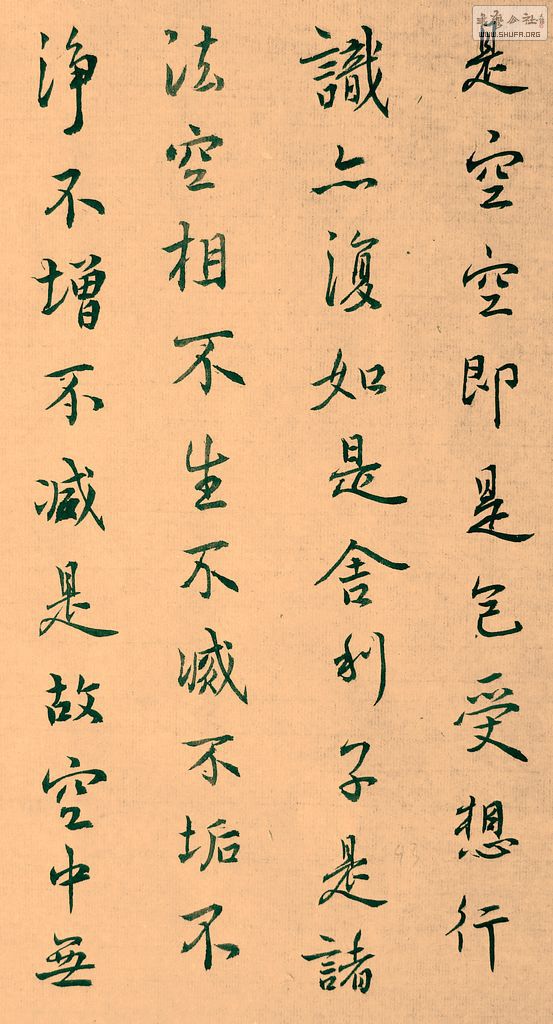 是空空即是色受想行
識亦復如是舍利子是諸
法空相不生不滅不垢不
淨不增不減是故空中無
WWW.SHUFA.ORG